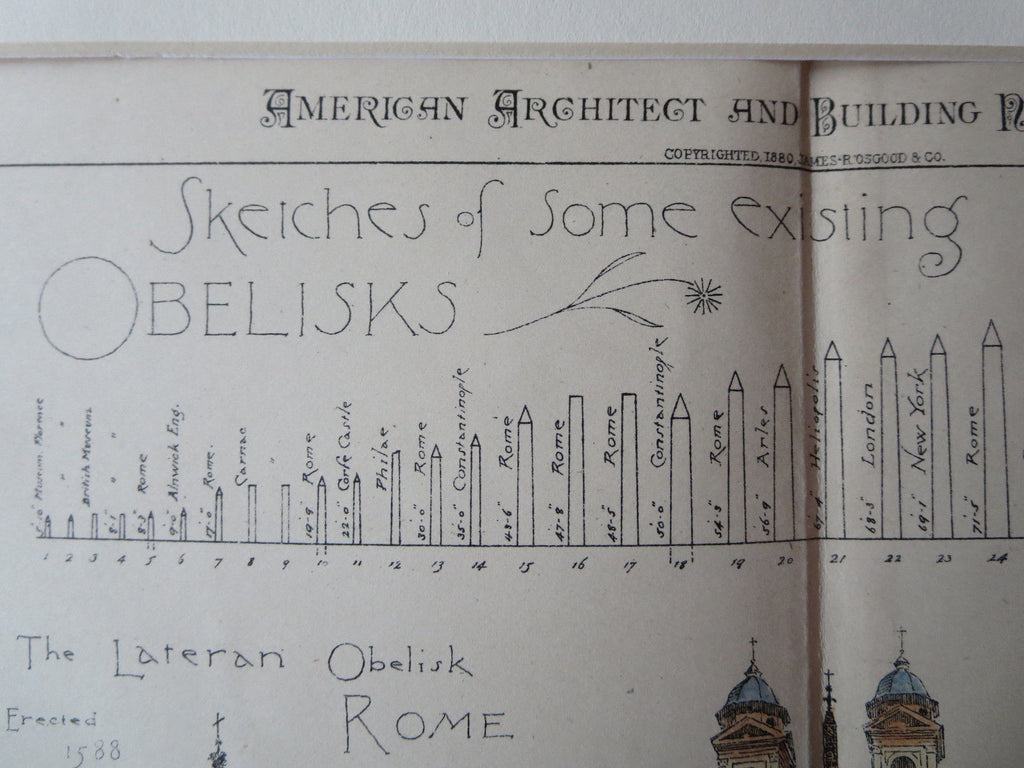 AMERICAN ARCHITECT AND BUILDING N
COPYRIGHTED, 1880, JAMES-R-OSGOOD & CO.
Sketches of Some existing
OBELISKS
British Museum
8'-2" Rome
9'-0" Alnwick Eng.
17'-0" Rome
Carnac
"
19'-9" Rome
22'-0" Corfe Castle
Philae
30'-0" Rome
35'-0" Constantinople
43'-6" Rome
47'-8" Rome
48'-5" Rome
50'-0" Constantinople
54'-3" Rome
56'-9" Arles
67'-4" Heliopolis
68'-5" London
69'-1" New York
71'-5" Rome
1 2 3 4 5 6 7 8 9 10 11 12 13 14 15 16 17 18 19 20 21 22 23 24
The Lateran Obelisk
ROME
Erected
1588